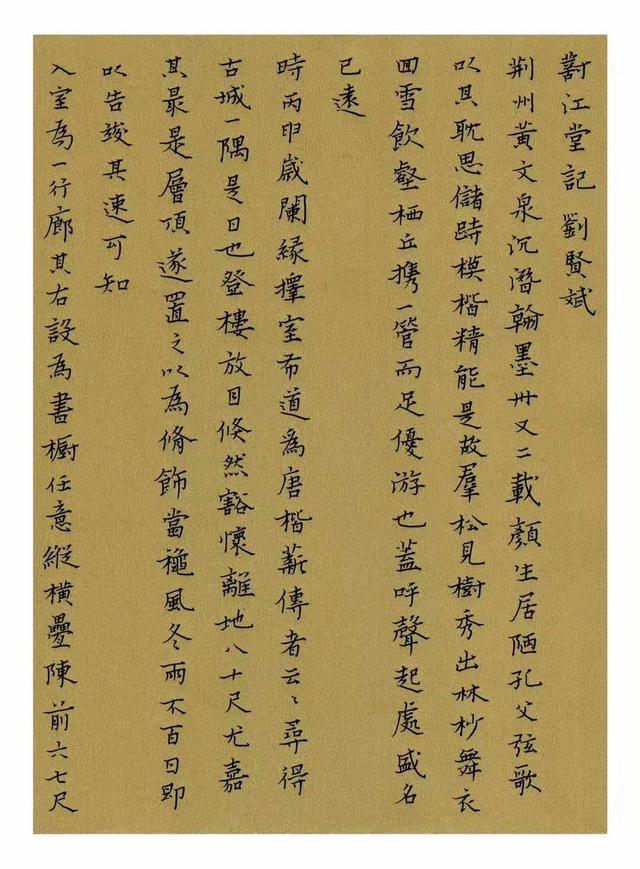 對江堂記 劉賢斌
荆州黃文泉沉潛翰墨卅又二載顏生居陋孔父弦歌
以其耽思儲跱模楷精能是故羣松見樹秀出林杪舞衣
回雪飲壑栖丘攜一管而足優游也蓋呼聲起處盛名
已遠
時丙申歲闌緣擇室布道為唐楷薪傳者云〻尋得
古城一隅是日也登樓放目倏然豁懷離地八十尺尤嘉
其最是層頂遂置之以為脩飾當龝風冬雨不百日即
以告竣其速可知
入室為一行廊其右設為書櫥任意縱橫疊陳前六七尺